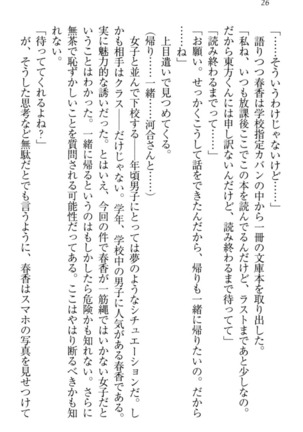 26
「……そういうわけじゃないけど……」
語りつつ春香は学校指定カバンの中から一冊の文庫本を取り出した。
「私ね、いつも放課後ここでこの本を読んでるんだけど、ラストまであと少しなの。
だから東方くんには申し訳ないんだけど、読み終わるまで待ってて」
「読み終わるまでって……」
「お願い。せっかくこうして話をできたんだから、帰りも一緒に帰りたいの。だから
……ね」
上目遣いで見つめてくる。
(帰り……一緒……河合さんと……)
女子と並んで下校する――年頃男子にとっては夢のようなシチュエーションだ。し
かも相手はクラス――だけじゃない。学年、学校中の男子に人気がある春香である。
実に魅力的な誘いだった。とはいえ、今回の件で春香が一筋縄ではいかない女子だと
いうことはわかった。一緒に帰るというのはもしかしたら危険かも知れない。さらに
無茶で恥ずかしいことを質問される可能性だってある。ここはやはり断るべきかも知
れない。
「待っててくれるよね?」
が、そうした思考など無駄だとでも言うように、春香はスマホの写真を見せつけて